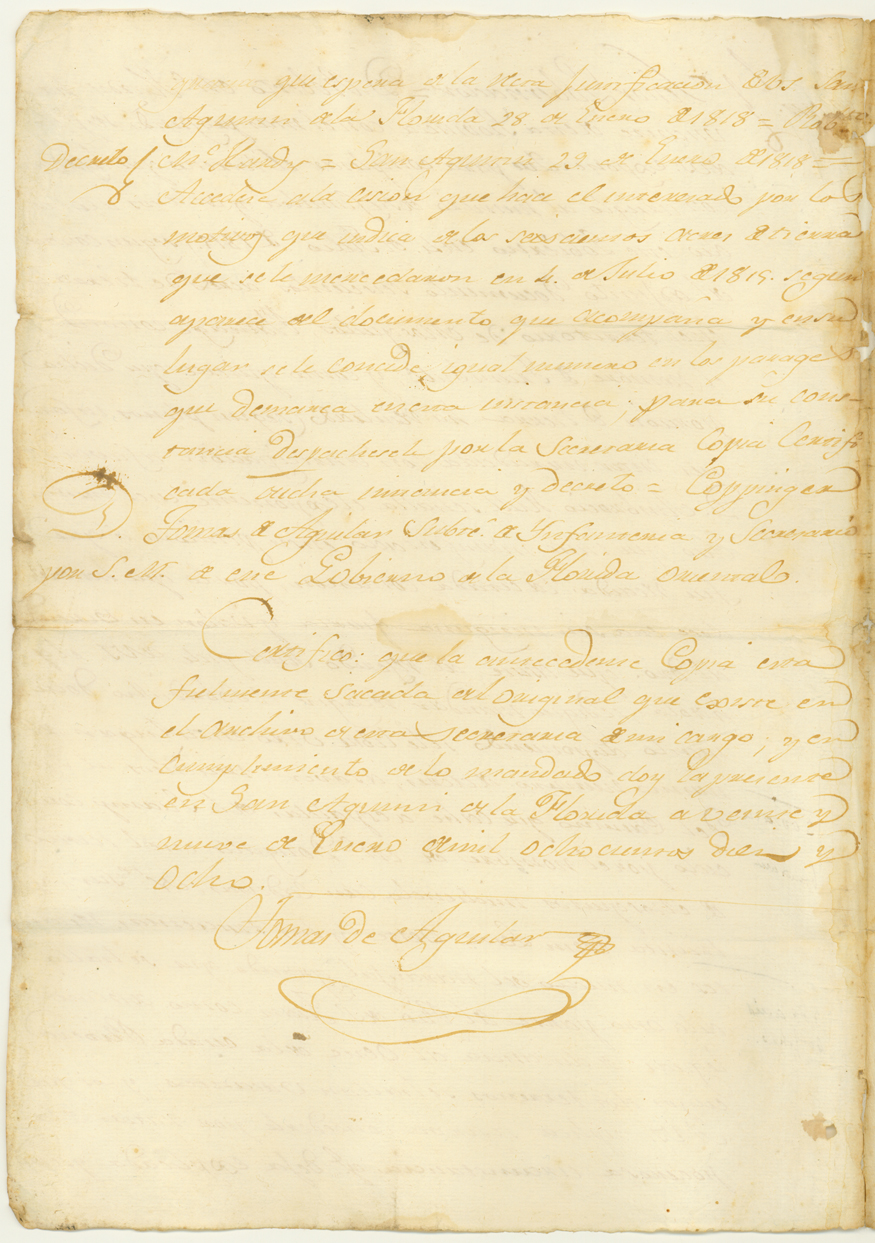 gracia que espera de la recta justificacion de VS. San
Agustin de la Florida 28 de Enero de 1818 = Robto
Decreto / Mc. Hardy = San Agustin 29 de Enero de 1818 =
Accedese a la cesion que hace el interesado por los
motivos que indica de los seiscientos acres de tierra
que se le mercedaron en 4. de Julio de 1815. segun
aparece del documento que acompaña y en su
lugar se le concede igual numero en los parages
que demarca en esta instancia; para su cons-
tancia despachesele por la Secretaria Copia Certifi
cada dicha instancia y decreto = Coppinger
Dn. Tomas de Aguilar Subte. de Ynfanteria y Secretario
por S. M. de este Gobierno de la Florida oriental.
Certifico: que la antecedente Copia esta
fielmente sacada del original que existe en
el archivo de esta secretaria de mi cargo; y en
cumplimiento de lo mandado doy la presente
en San Agustin de la Florida a veinte y
nueve de Enero de mil ochocientos diez y
ocho.
Tomas de Aguilar